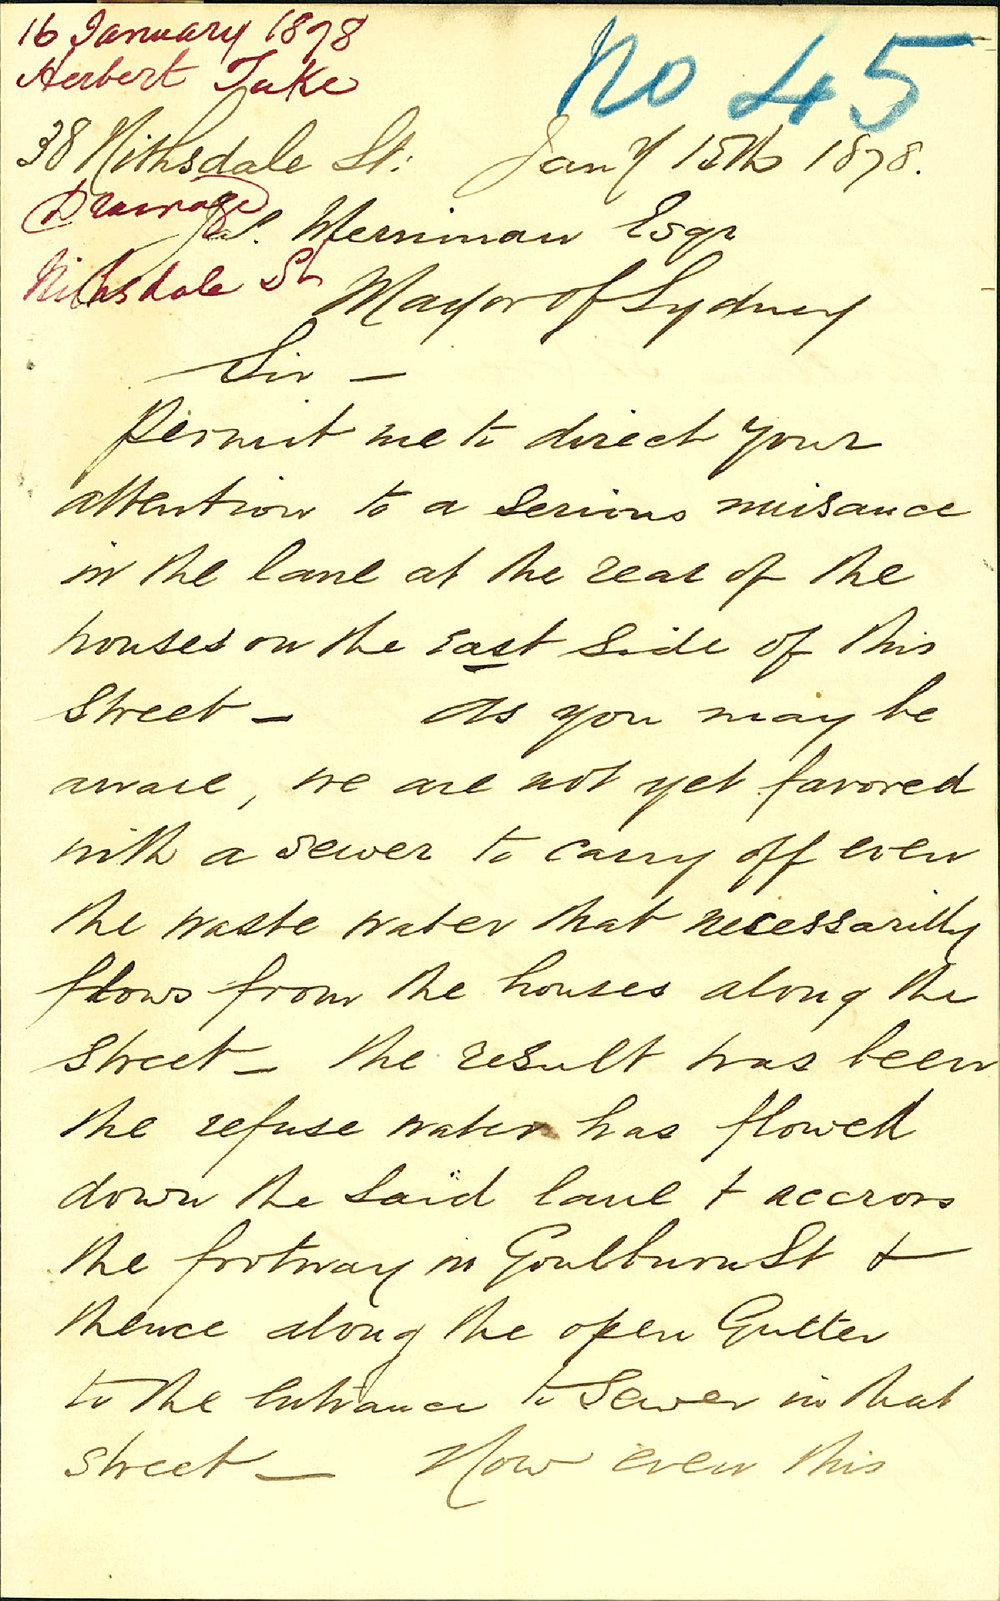 16 January 1878
Herbert Take
No 45
38 Nithsdale St: Jany 15th 1878.
Drainage
Jas. Merriman Esqr
Nithsdale St
Mayor of Sydney
Sir —
Permit me to direct your
attention to a serious nuisance
in the lane at the rear of the
houses on the east side of this
street — As you may be
aware, we are not yet favored
with a sewer to carry off even
the waste water that necessarilly
flows from the houses along the
street — the result has been
the refuse water has flowed
down the said lane & accross
the footway in Goulburn St &
thence along the open Gutter
to the entrance to Sewer in that
street — Now even this